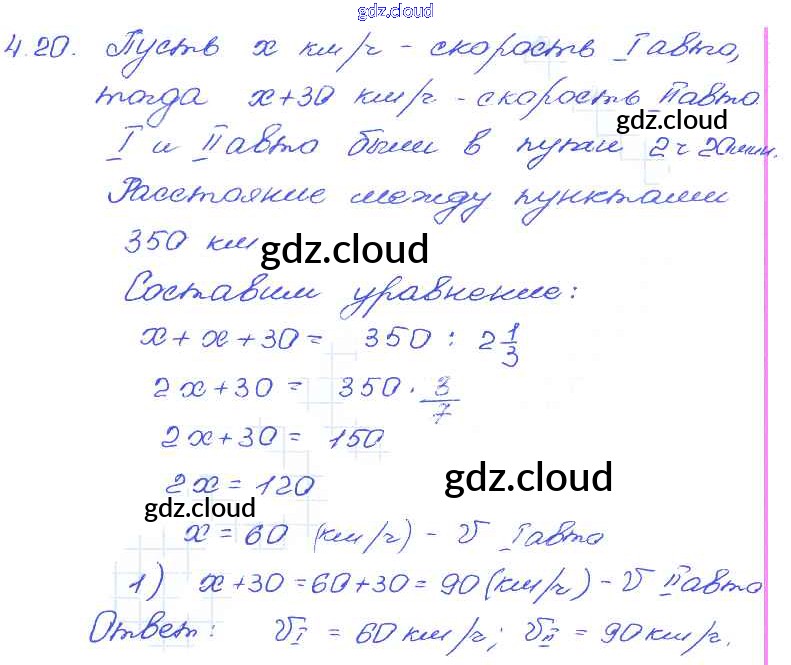 gdz.cloud
4.20. Пусть x км/ч - скорость I авто,
тогда x+30 км/ч - скорость II авто.
gdz.cloud
I и II авто были в пути 2ч 20мин.
Расстояние между пунктами
350 км
gdz.cloud
Составим уравнение:
x + x + 30 = 350 : 2 1/3
2x + 30 = 350 · 3/7
2x + 30 = 150
gdz.cloud
2x = 120
gdz.cloud
x = 60 (км/ч) - V I авто
gdz.cloud
1) x + 30 = 60 + 30 = 90 (км/ч) - V II авто
Ответ: V I = 60 км/ч; V II = 90 км/ч.